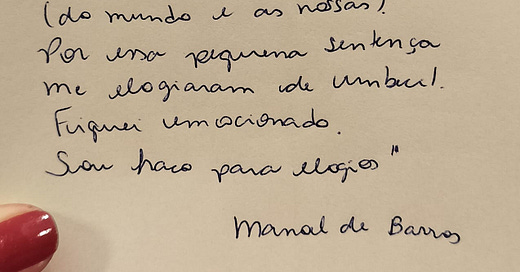 (do mundo e as nossas)
Por essa pequena sentença
me elogiaram de imbecil.
Fiquei emocionado.
Sou fraco para elogios"
Manoel de Barros